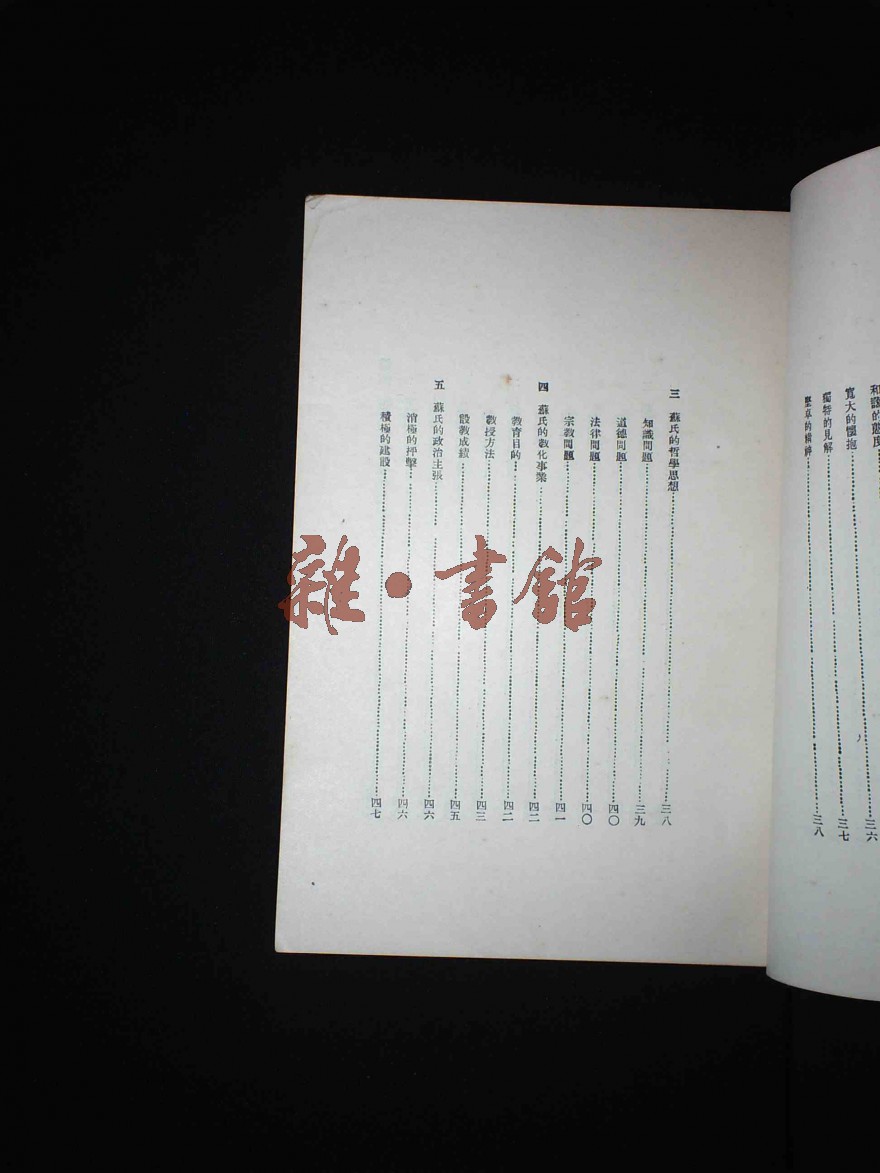 和諧的態度……三六
寬大的懷抱……三七
獨特的見解
堅卓的精神……三八
三　蘇氏的哲學思想……三八
知識問題……三九
道德問題……四〇
法律問題……四〇
宗教問題……四一
四　蘇氏的教化事業……四二
教育目的……四二
教授方法……四三
設教成績……四五
五　蘇氏的政治主張……四六
消極的抨擊……四六
積極的建設……四七
雜·書館